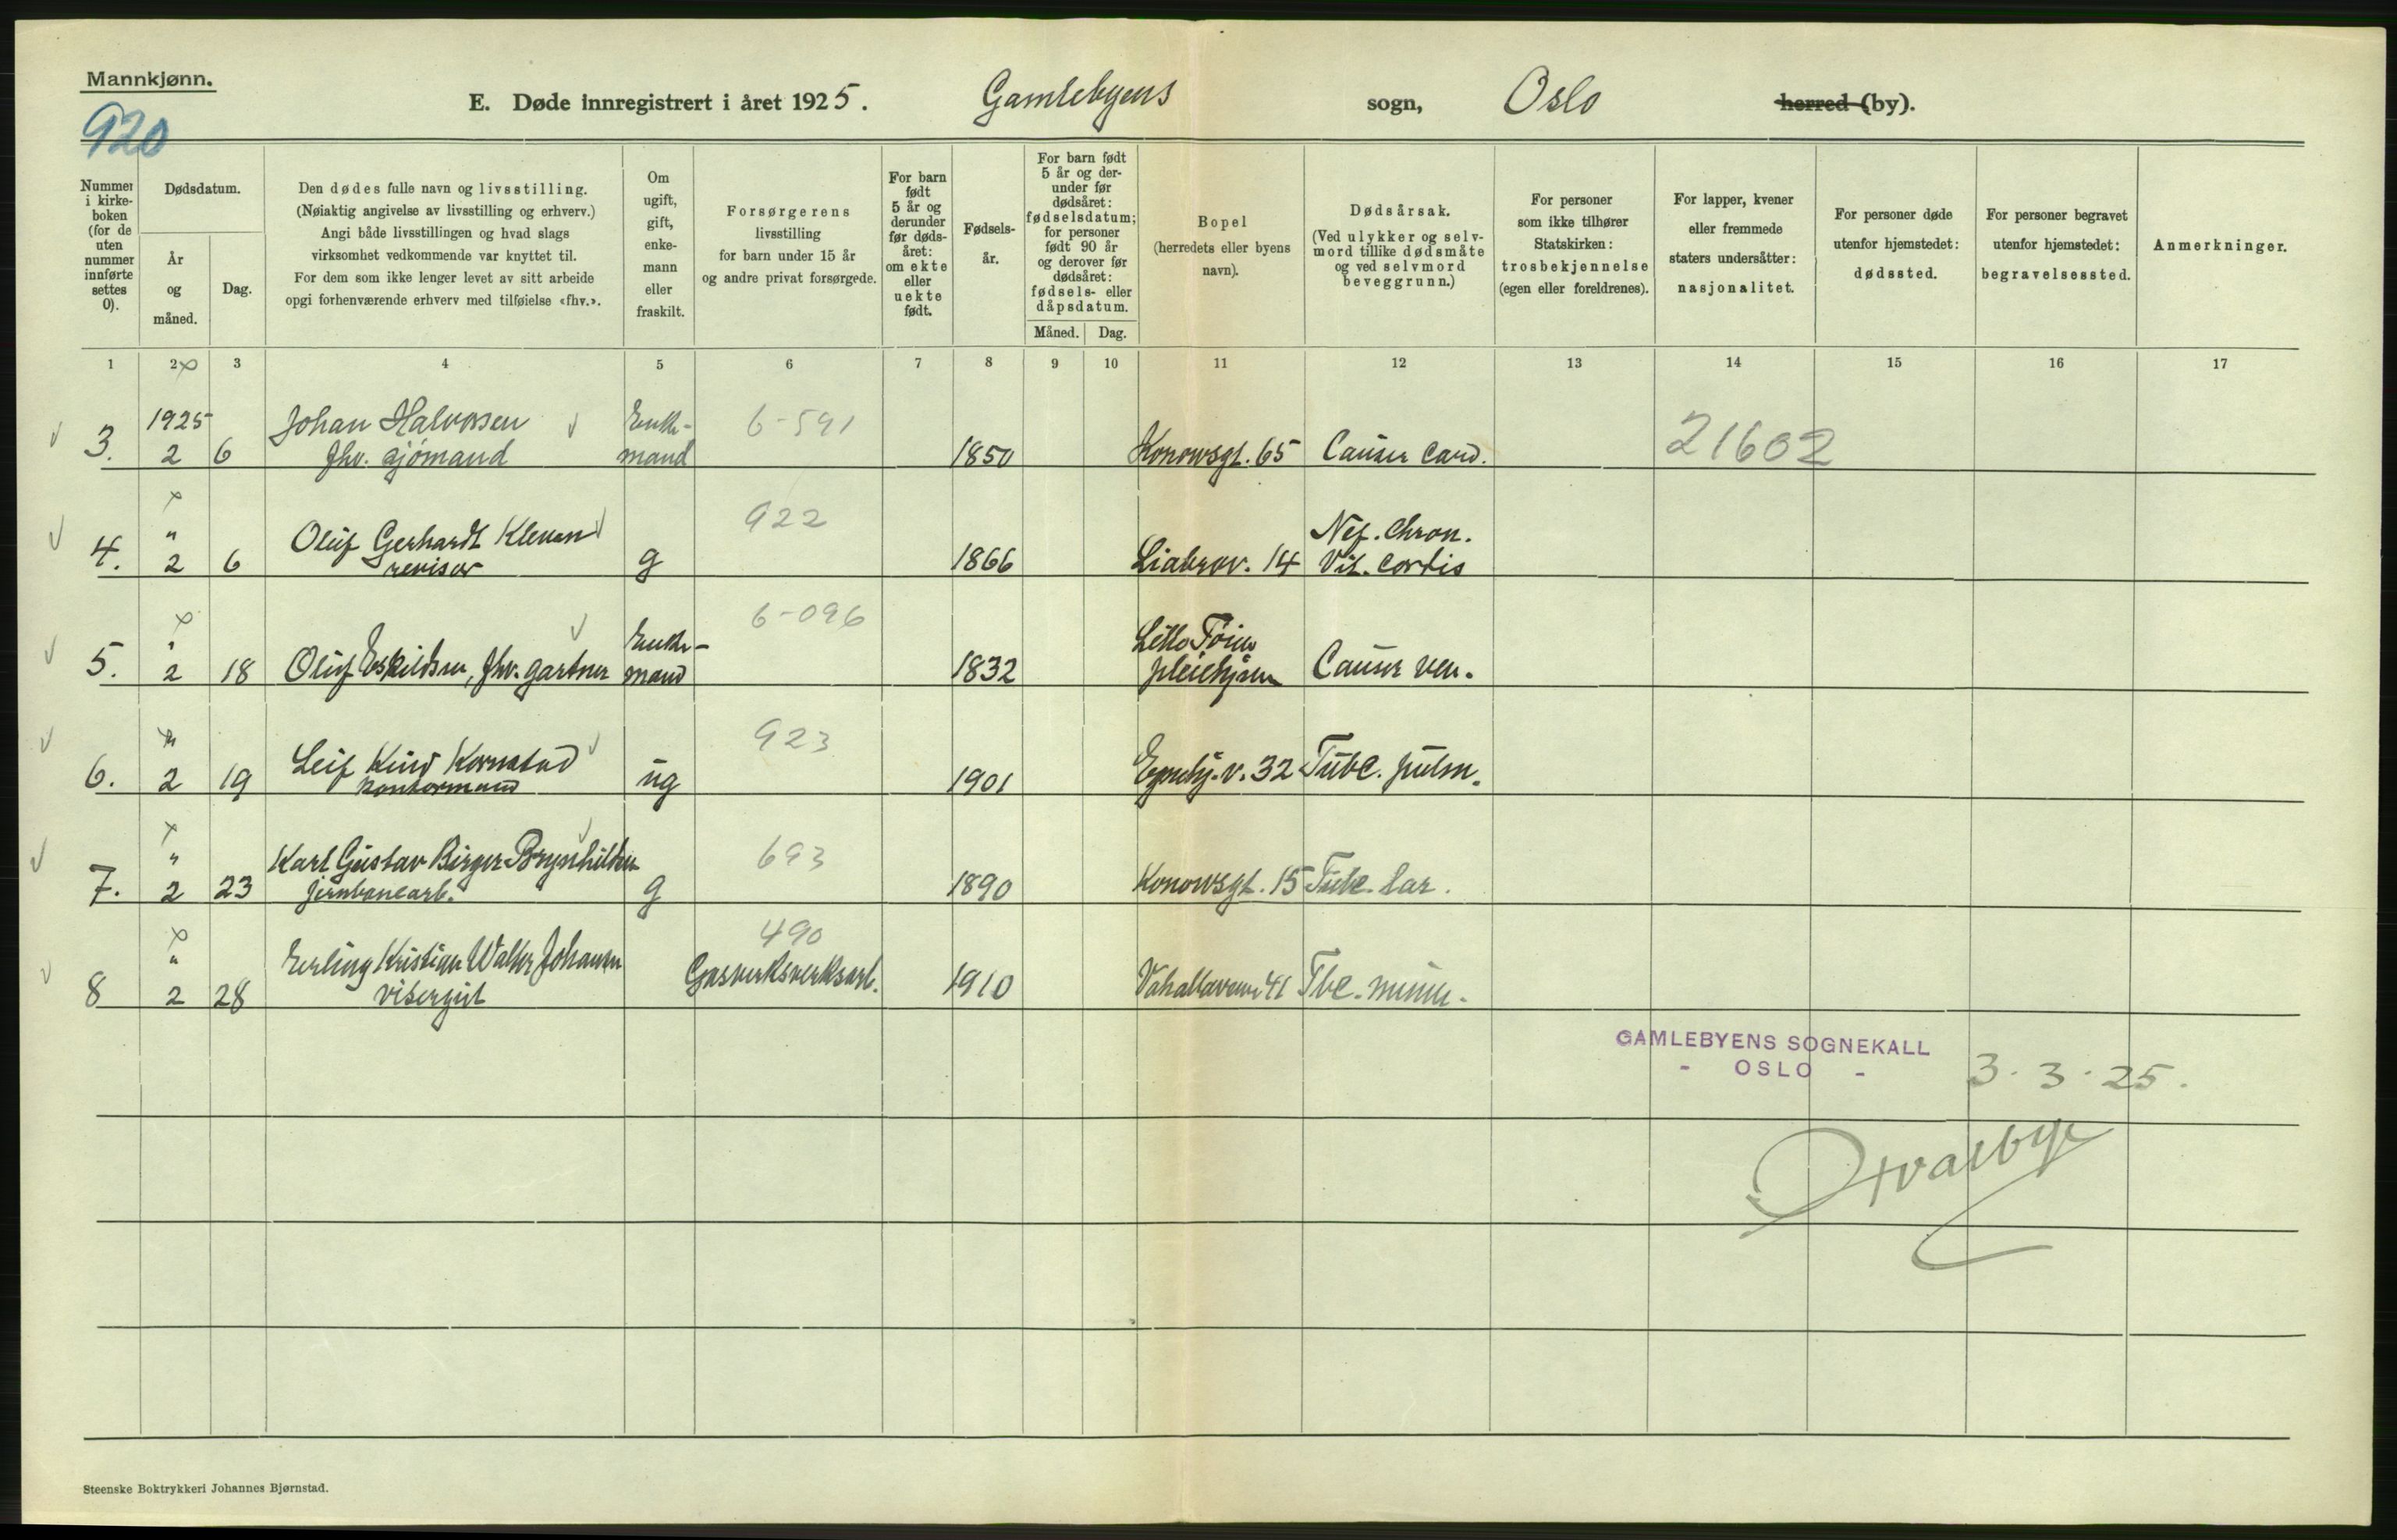 Mannkjønn.
920
E. Døde innregistrert i året 1925. Gamlebyens sogn, Oslo herred (by).
Nummer i kirke-boken (for de uten nummer innførte settes 0).
Dødsdatum.
År og måned.
Dag.
Den dødes fulle navn og livsstilling.
(Nøiaktig angivelse av livsstilling og erhverv.)
Angi både livsstillingen og hvad slags
virksomhet vedkommende var knyttet til.
For dem som ikke lenger levet av sitt arbeide
opgi forhenværende erhverv med tilføielse «fhv.».
Om ugift, gift, enke-mann eller fraskilt.
Forsørgerens
livsstilling
for barn under 15 år
og andre privat forsørgede.
For barn født 5 år og derunder før døds-året: om ekte eller uekte født.
Fødsels-år.
For barn født 5 år og der-under før dødsåret: fødselsdatum; for personer født 90 år og derover før dødsåret: fødsels- eller dåpsdatum.
Måned. Dag.
Bopel
(herredets eller byens
navn).
Dødsårsak.
(Ved ulykker og selv-
mord tillike dødsmåte
og ved selvmord
beveggrunn.)
For personer
som ikke tilhører
Statskirken:
trosbekjennelse
(egen eller foreldrenes).
For lapper, kvener
eller fremmede
staters undersåtter:
nasjonalitet.
For personer døde
utenfor hjemstedet:
dødssted.
For personer begravet
utenfor hjemstedet:
begravelsessted.
Anmerkninger.
1 2 3 4 5 6 7 8 9 10 11 12 13 14 15 16 17
1925 Johan Halvorsen Enke- 6-591 21602
3. 2 6 fhv. sjömand mand 1850 Konowsgt. 65 Cancer Card.
" Oluf Gerhardt 922 Nef. Chron.
4. 2 6 revisor g 1866 Liabrov. 14 Vit. Cordis
" Enke- 6-096 Lille Tøien
5. 2 18 Oluf Eskildsen, fhv. gartner mand 1832 pleiehjem Cancer ven.
" Leif Kornstad 923
6. 2 19 kontormand ug 1901 32 Tubc. pulm.
" Karl Gustav Birger Brynhildsen 693
7. 2 23 jernbanearb. g 1890 Konowsgt. 15 Tubc. lar.
" Erling Kristian Walter Johansen 490
8 2 28 visergut Gasverksverksarb. 1910 41 Tbc.
GAMLEBYENS SOGNEKALL
- OSLO -
3.3.25.
Steenske Boktrykkeri Johannes Bjørnstad.